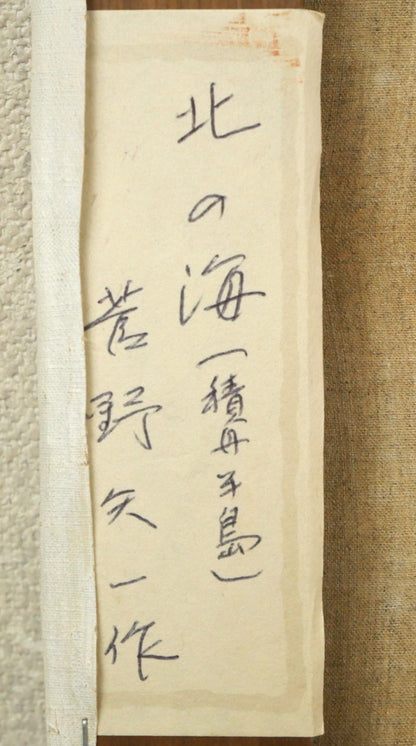 北の海(積丹半島)
菅野矢一作